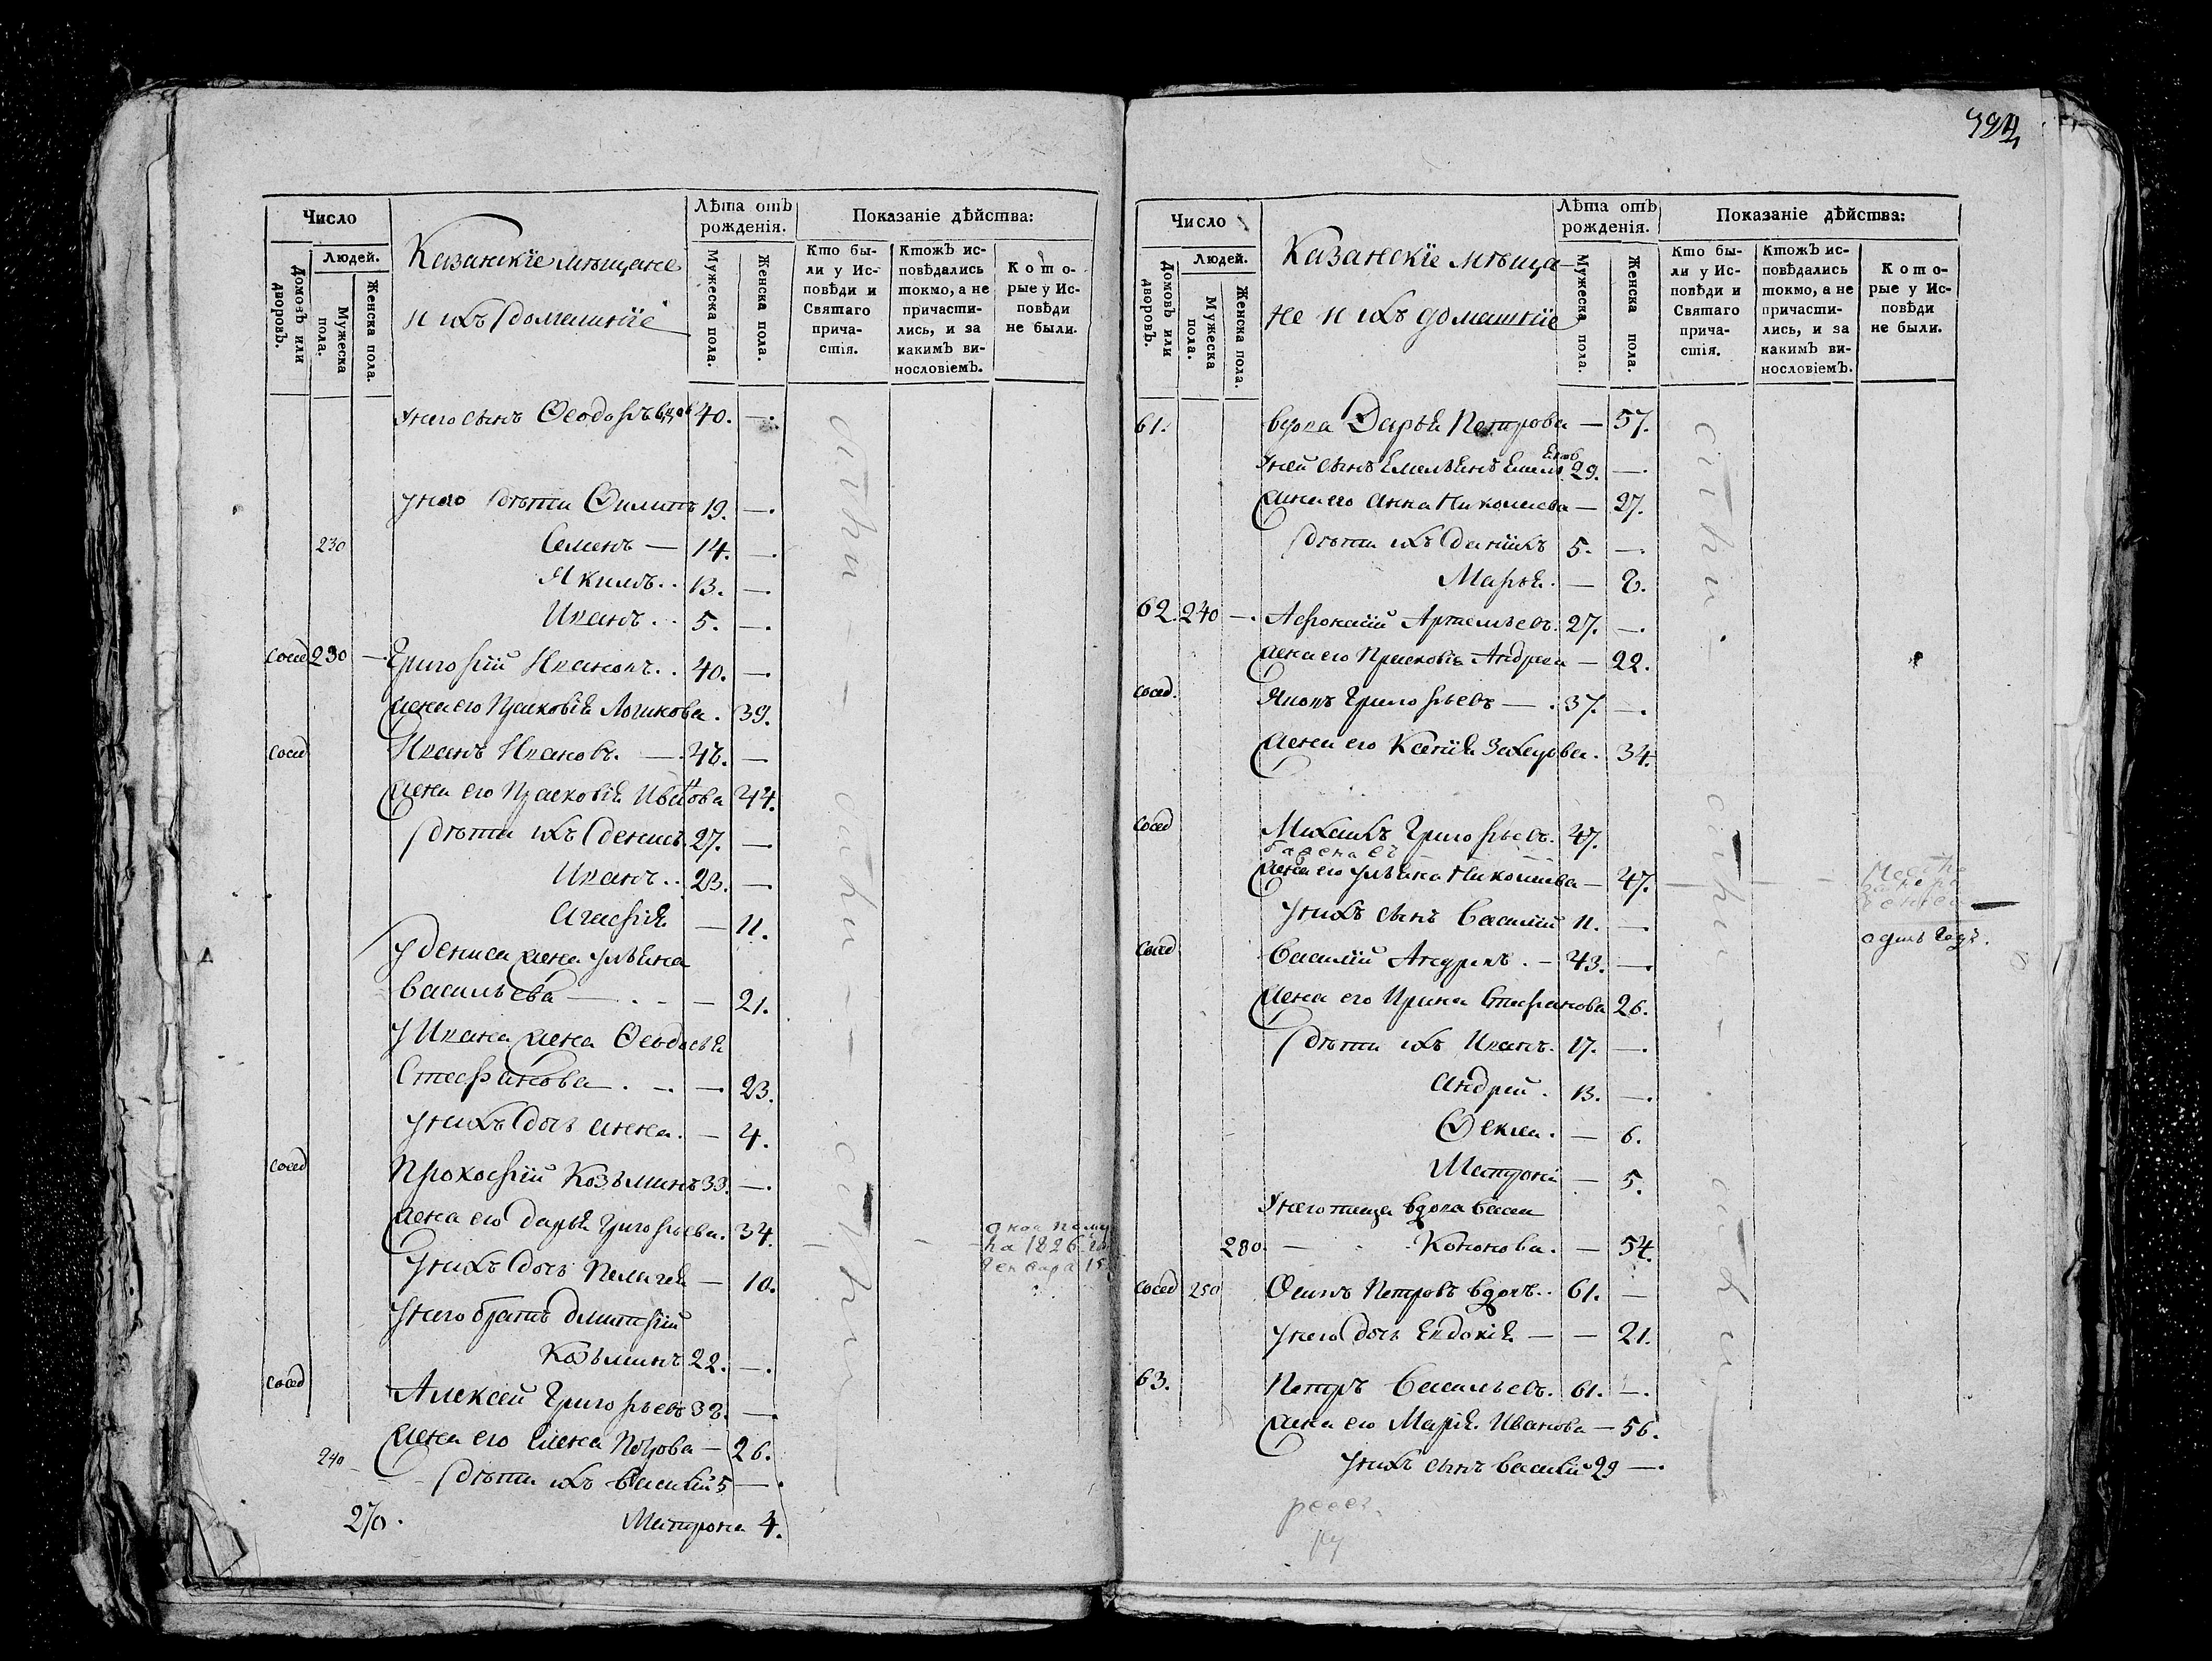 Число
Людей.
Домовъ или дворовъ.
Мужеска пола.
Женска пола.
Казанскіе мѣщане
и ихъ домашніе
Лѣта отъ рожденія.
Мужеска пола.
Женска пола.
Показаніе дѣйства:
Кто бы-
ли у Ис-
повѣди и
Святаго
прича-
стія.
Ктожъ ис-
повѣдались
токмо, а не
причасти-
лись, и за
какимъ ви-
нословіемъ.
Кото-
рые у Ис-
повѣди
не были.
у него сынъ Ѳеодоръ вдов 40. —.
у него дѣти Филипъ 19. —.
230 Семенъ — 14. —.
Якимъ.. 13. —.
Иванъ.. 5. —.
сосед 230 —. Григорій Ивановъ.. 40. —.
жена его Прасковія Логинова. 39.
сосед Иванъ Ивановъ. — 48. —
жена его Прасковія Иванова 44.
дѣти ихъ Денисъ. 27. —
Иванъ.. 23. —.
Агафія — 11.
у Дениса жена Ульяна
Васильева — . - — 21.
у Ивана жена Ѳеодосья
Стефанова — . — 23.
у нихъ дочь Анна. — 4.
сосед Прокофій Козьминъ 33. —.
жена его Дарья Григорьева. 34.
у нихъ дочь Пелагея — 10.
у него братъ Дмитрій
Козьминъ 22. —.
сосед Алексей Григорьевъ 38. —.
жена его Елена Петрова — 26.
240 дѣти ихъ Василій 5 —.
270. Матрона 4.
на 1826
394
Число
Людей.
Домовъ или дворовъ.
Мужеска пола.
Женска пола.
Казанскіе мѣща-
не и ихъ домашніе
Лѣта отъ рожденія.
Мужеска пола.
Женска пола.
Показаніе дѣйства:
Кто бы-
ли у Ис-
повѣди и
Святаго
прича-
стія.
Ктожъ ис-
повѣдались
токмо, а не
причасти-
лись, и за
какимъ ви-
нословіемъ.
Кото-
рые у Ис-
повѣди
не были.
61. вдова Дарья Петрова — 57.
у ней сынъ Емельянъ 29. —.
жена его Анна Николаева — 27.
дѣти ихъ Даніилъ 5. —.
Марья. — 8.
62. 240 —. Артемьевъ. 27. —.
жена его Прасковія Андреева — 22.
сосед. Яковъ Григорьевъ — . 37. —.
жена его Ксенія Захарова. 34.
сосед Михаилъ Григорьевъ. 47.
жена его Ульяна Николаева — 47.
у нихъ сынъ Василій 11. —.
одинъ годъ.
сосед Василій Андреевъ. — 43. —.
жена его Ирина Стефанова 26.
дѣти ихъ Иванъ. 17. —.
Андрей. 13. —.
Ѳекла. — 6.
Матрона — 5.
у него теща вдова
280. — Кононова. — 54.
сосед 250 Осипъ Петровъ вдовъ.. 61. —
у него дочь Евдокія — — 21.
63. Петръ Васильевъ. 61. —.
жена его Марія Иванова — 56.
у нихъ сынъ Василій 29 —.